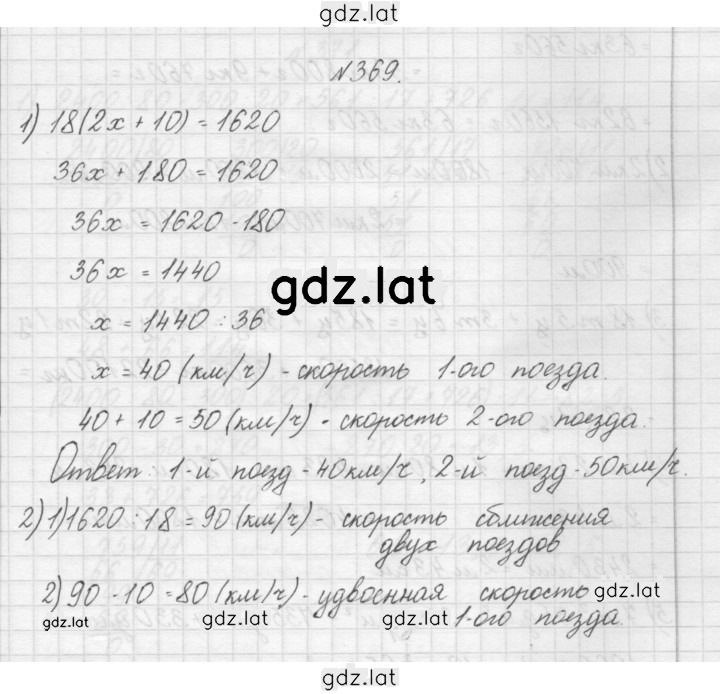 gdz.lat
№369.
1) 18(2x + 10) = 1620
36x + 180 = 1620
36x = 1620 - 180
36x = 1440
gdz.lat
x = 1440 : 36
x = 40 (км/ч) - скорость 1-ого поезда.
40 + 10 = 50 (км/ч) - скорость 2-ого поезда.
Ответ: 1-й поезд - 40км/ч, 2-й поезд - 50км/ч.
2) 1) 1620 : 18 = 90 (км/ч) - скорость сближения
двух поездов
2) 90 - 10 = 80 (км/ч) - удвоенная скорость
gdz.lat gdz.lat gdz.lat
1-ого поезда.
gdz.lat